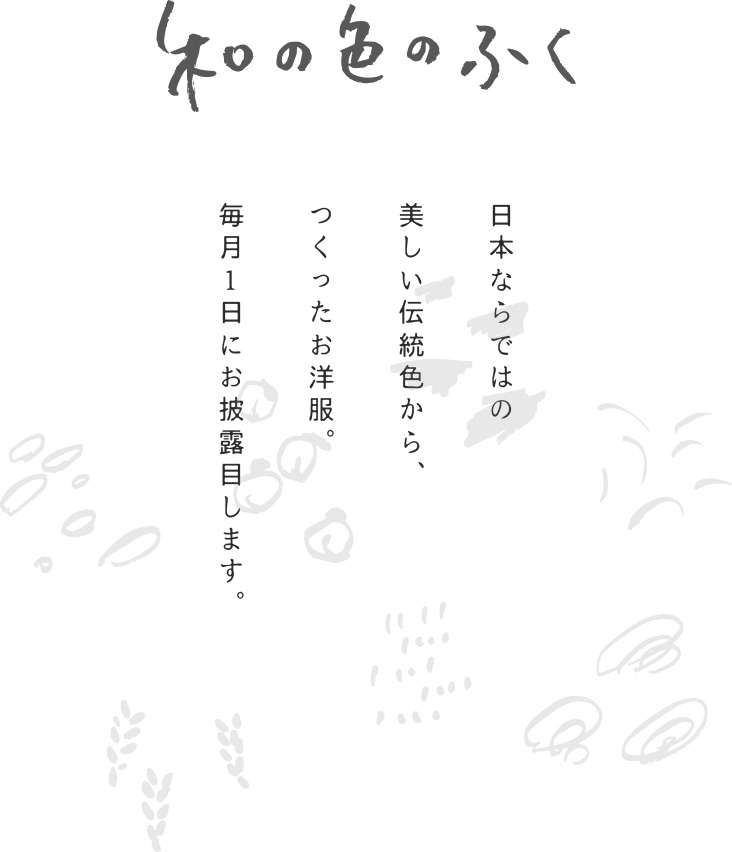 和の色のふく
日本ならではの
美しい伝統色から、
つくったお洋服。
毎月1日にお披露目します。